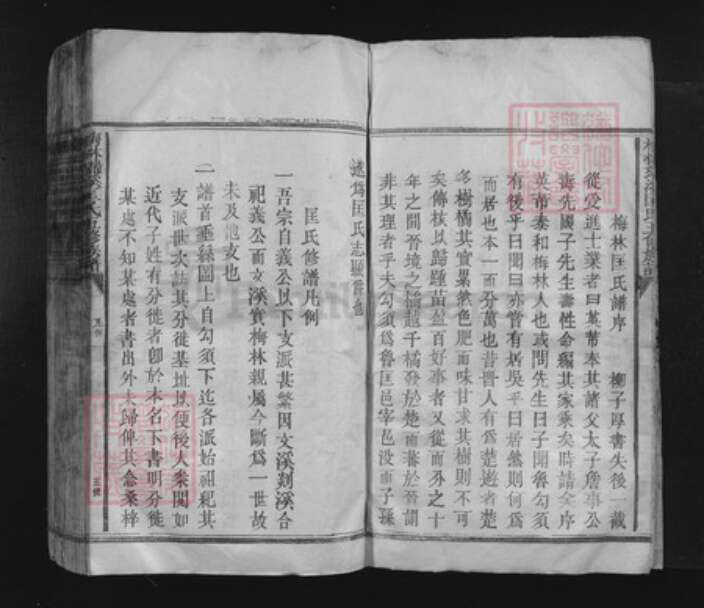 梅林匡氏譜序 柳子厚書失後一截
從受進士業者曰英芾奉其諸父太子詹事公
壽先國子先生壽牲命編其家乘矣時請余序
英芾泰和梅林人也或問先生曰子聞魯勾須
有後乎曰聞曰亦嘗有居吳乎曰居然則何爲
而居也本一而分萬也昔晉人有爲楚遊者楚
多樹橘其實纍然色肥而味甘求其樹則不可
矣傳核以歸題苗盈百好事者又從而分之十
年之間晉境之橘越千橘發於楚而蕃於晉謂
非其理者乎夫勾須爲魯匡邑宰邑没而子孫
遂爲匡氏志顯
匡氏修譜凡例
一吾宗自義公以下支派甚繁因文溪剡溪合
祀義公而文溪實梅林親屬今斷爲一世故
未及他支也
一譜首垂絲圖上自勾須下迄各派始祖紀其
支派世次註其分徙基址以便後人案閱如
近代子姓有分徙者卽於本名下書明分徙
某處不知某處者書出外未歸俾其念桑梓